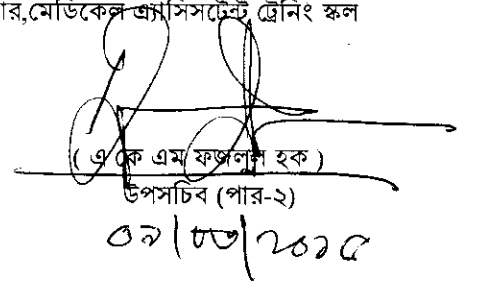 র,মেডিকেল এ্যাসিসটেন্ট ট্রেনিং স্কুল
( এ কে এম ফজলুল হক )
উপসচিব (পার-২)
০৯/০৮/২০১৫